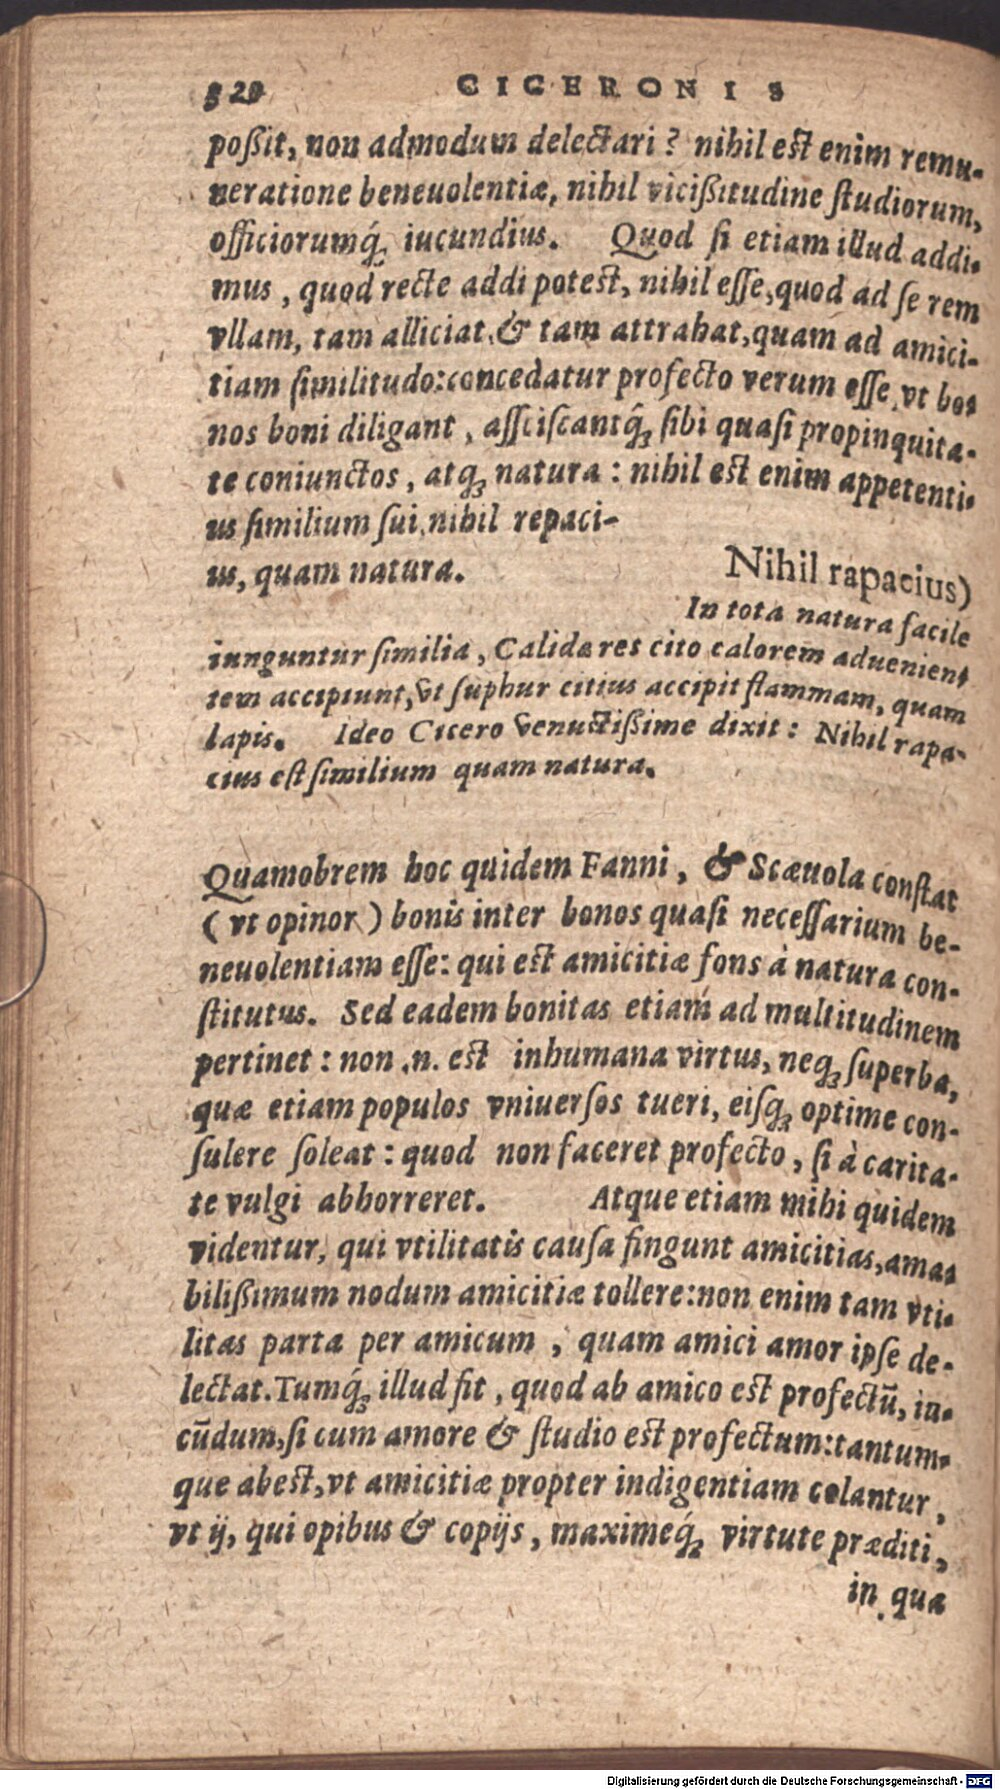 320 CICERONIS
poßit, non admodum delectari? nihil est enim remu-
neratione beneuolentiæ, nihil vicißitudine ſtudiorum,
officiorumq́ꝫ iucundius. Quod ſi etiam illud addi-
mus, quod recte addi potest, nihil eſſe, quod ad ſe rem
vllam, tam alliciat, & tam attrahat, quam ad amici-
tiam ſimilitudo: concedatur profecto verum eſſe, vt bo-
nos boni diligant, aſſciſcantq́ꝫ ſibi quaſi propinquita-
te coniunctos, atqꝫ natura: nihil est enim appetenti-
us ſimilium ſui, nihil repaci-
us, quam natura.
Nihil rapacius)
In tota natura facile
iunguntur ſimilia, Calida res cito calorem aduenien-
tem accipiunt, vt ſuphur citius accipit flammam, quam
lapis. Ideo Cicero venuctißime dixit: Nihil rapa-
cius eſt ſimilium quam natura.
Quamobrem hoc quidem Fanni, & Scæuola conſtat
(vt opinor) bonis inter bonos quaſi neceſſarium be-
neuolentiam eſſe: qui est amicitiæ fons à natura con-
ſtitutus. Sed eadem bonitas etiam ad multitudinem
pertinet: non .n. est inhumana virtus, neqꝫ ſuperba,
quæ etiam populos vniuerſos tueri, eiſqꝫ optime con-
ſulere ſoleat: quod non faceret profecto, ſi à carita-
te vulgi abhorreret. Atque etiam mihi quidem
videntur, qui vtilitatis cauſa fingunt amicitias, ama-
bilißimum nodum amicitiæ tollere: non enim tam vti-
litas parta per amicum, quam amici amor ipſe de-
lectat. Tumq́ꝫ illud fit, quod ab amico est profectū, iu-
cūdum, ſi cum amore & ſtudio est profectum: tantum-
que abest, vt amicitiæ propter indigentiam colantur,
vt ij, qui opibus & copijs, maximeq́ꝫ virtute præditi,
in qua
Digitalisierung gefördert durch die Deutsche Forschungsgemeinschaft - DFG